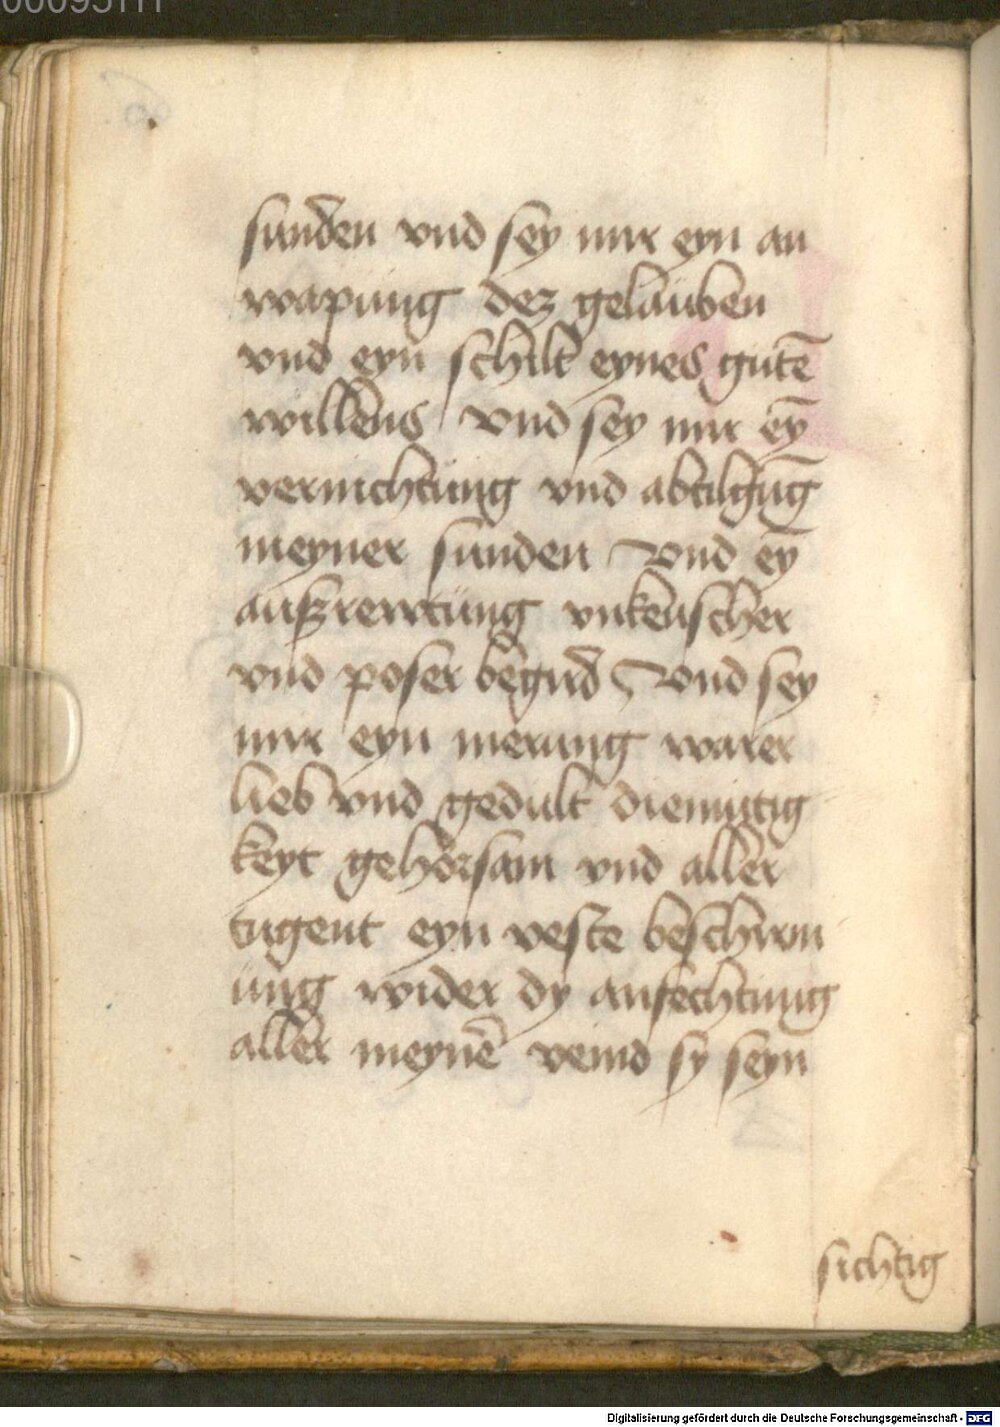 sunden vnd sey mir eyn an
wapung dez gelauben
vnd eyn schilt eynes gutē
willens Vnd sey mir eȳ
vernichtung vnd abtilgūg
meyner sunden Vnd eȳ
auszrewtung vnkeuscher
vnd poser begird Vnd sey
mir eyn merung warer
lieb vnd gedult diemutig
keyt gehorsam vnd aller
tugent eyn veste beschirm
ung wider dy anfechtung
aller meynē veind sy seyn
sichtig
Digitalisierung gefördert durch die Deutsche Forschungsgemeinschaft - DFG